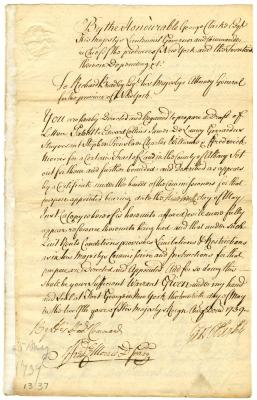 By the Honourable George Clarke Esqr
His Majestys Lieutenant Governour and Commander
in Chief of the province of New York and the Territories
thereon Depending &c.
To Richard Bradley Esqr his Majestys Attorney General
for the province of New York
You are hereby Directed and Required to prepare a Draft of
Letters Patent to Edward Collins James De Lancey Gerardus
Stuyvesant Stephen Charles Williams & Frederick
Morris for a Certain Tract of Land in the County of Albany Set
out for them and further bounded and Described as appears
by a Certificate under the hands of the Commissioners for that
purpose appointed bearing date the day of May
Inst a Copy whereof is hereunto affixed for the more fully
appear reference thereunto being had and that under such
Quit Rents Conditions provisoes Limitations & Restrictions
as in his Majestys Commission and Instructions for that
purpose are Directed and Appointed And for so doing this
shall be your Sufficient Warrant Given under my hand
and Seal at Fort George in New York the day of May
in the twelfth year of his Majestys Reign Anno Dom 1739.
Geo Clarke
By his Honrs Command
Secry
25 May
1739
1337